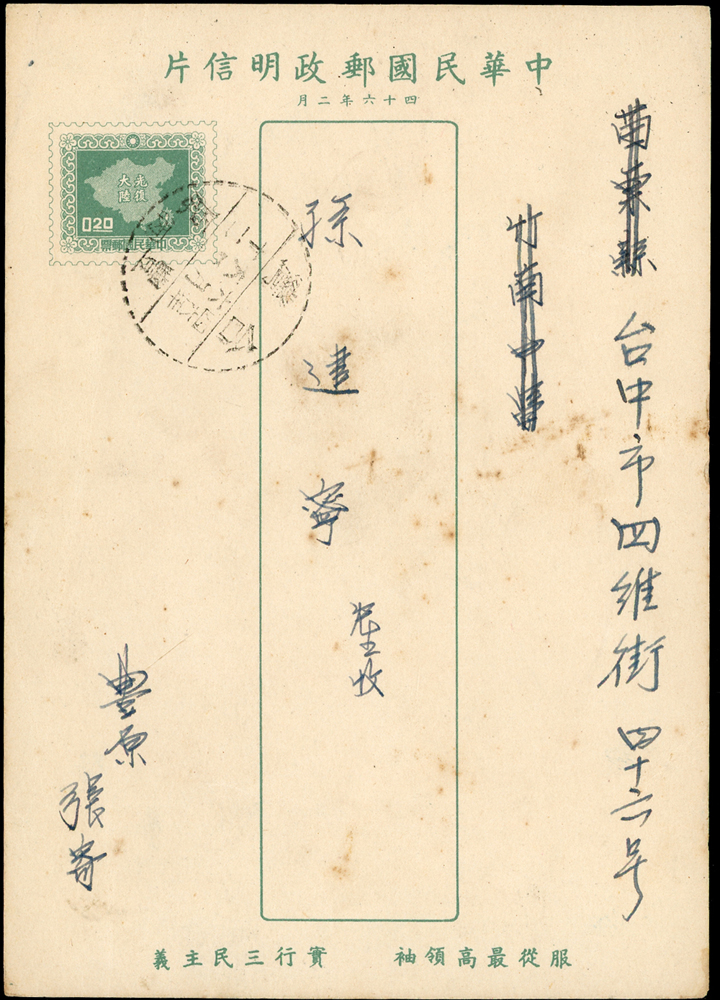 中華民國郵政明信片
四十六年二月
苗栗縣 台中市四維街 四十六号
竹南中
孫建寧 先生收
豊原
張寄
光復
大陸
0.20
中華民國郵票
服從最高領袖 實行三民主義